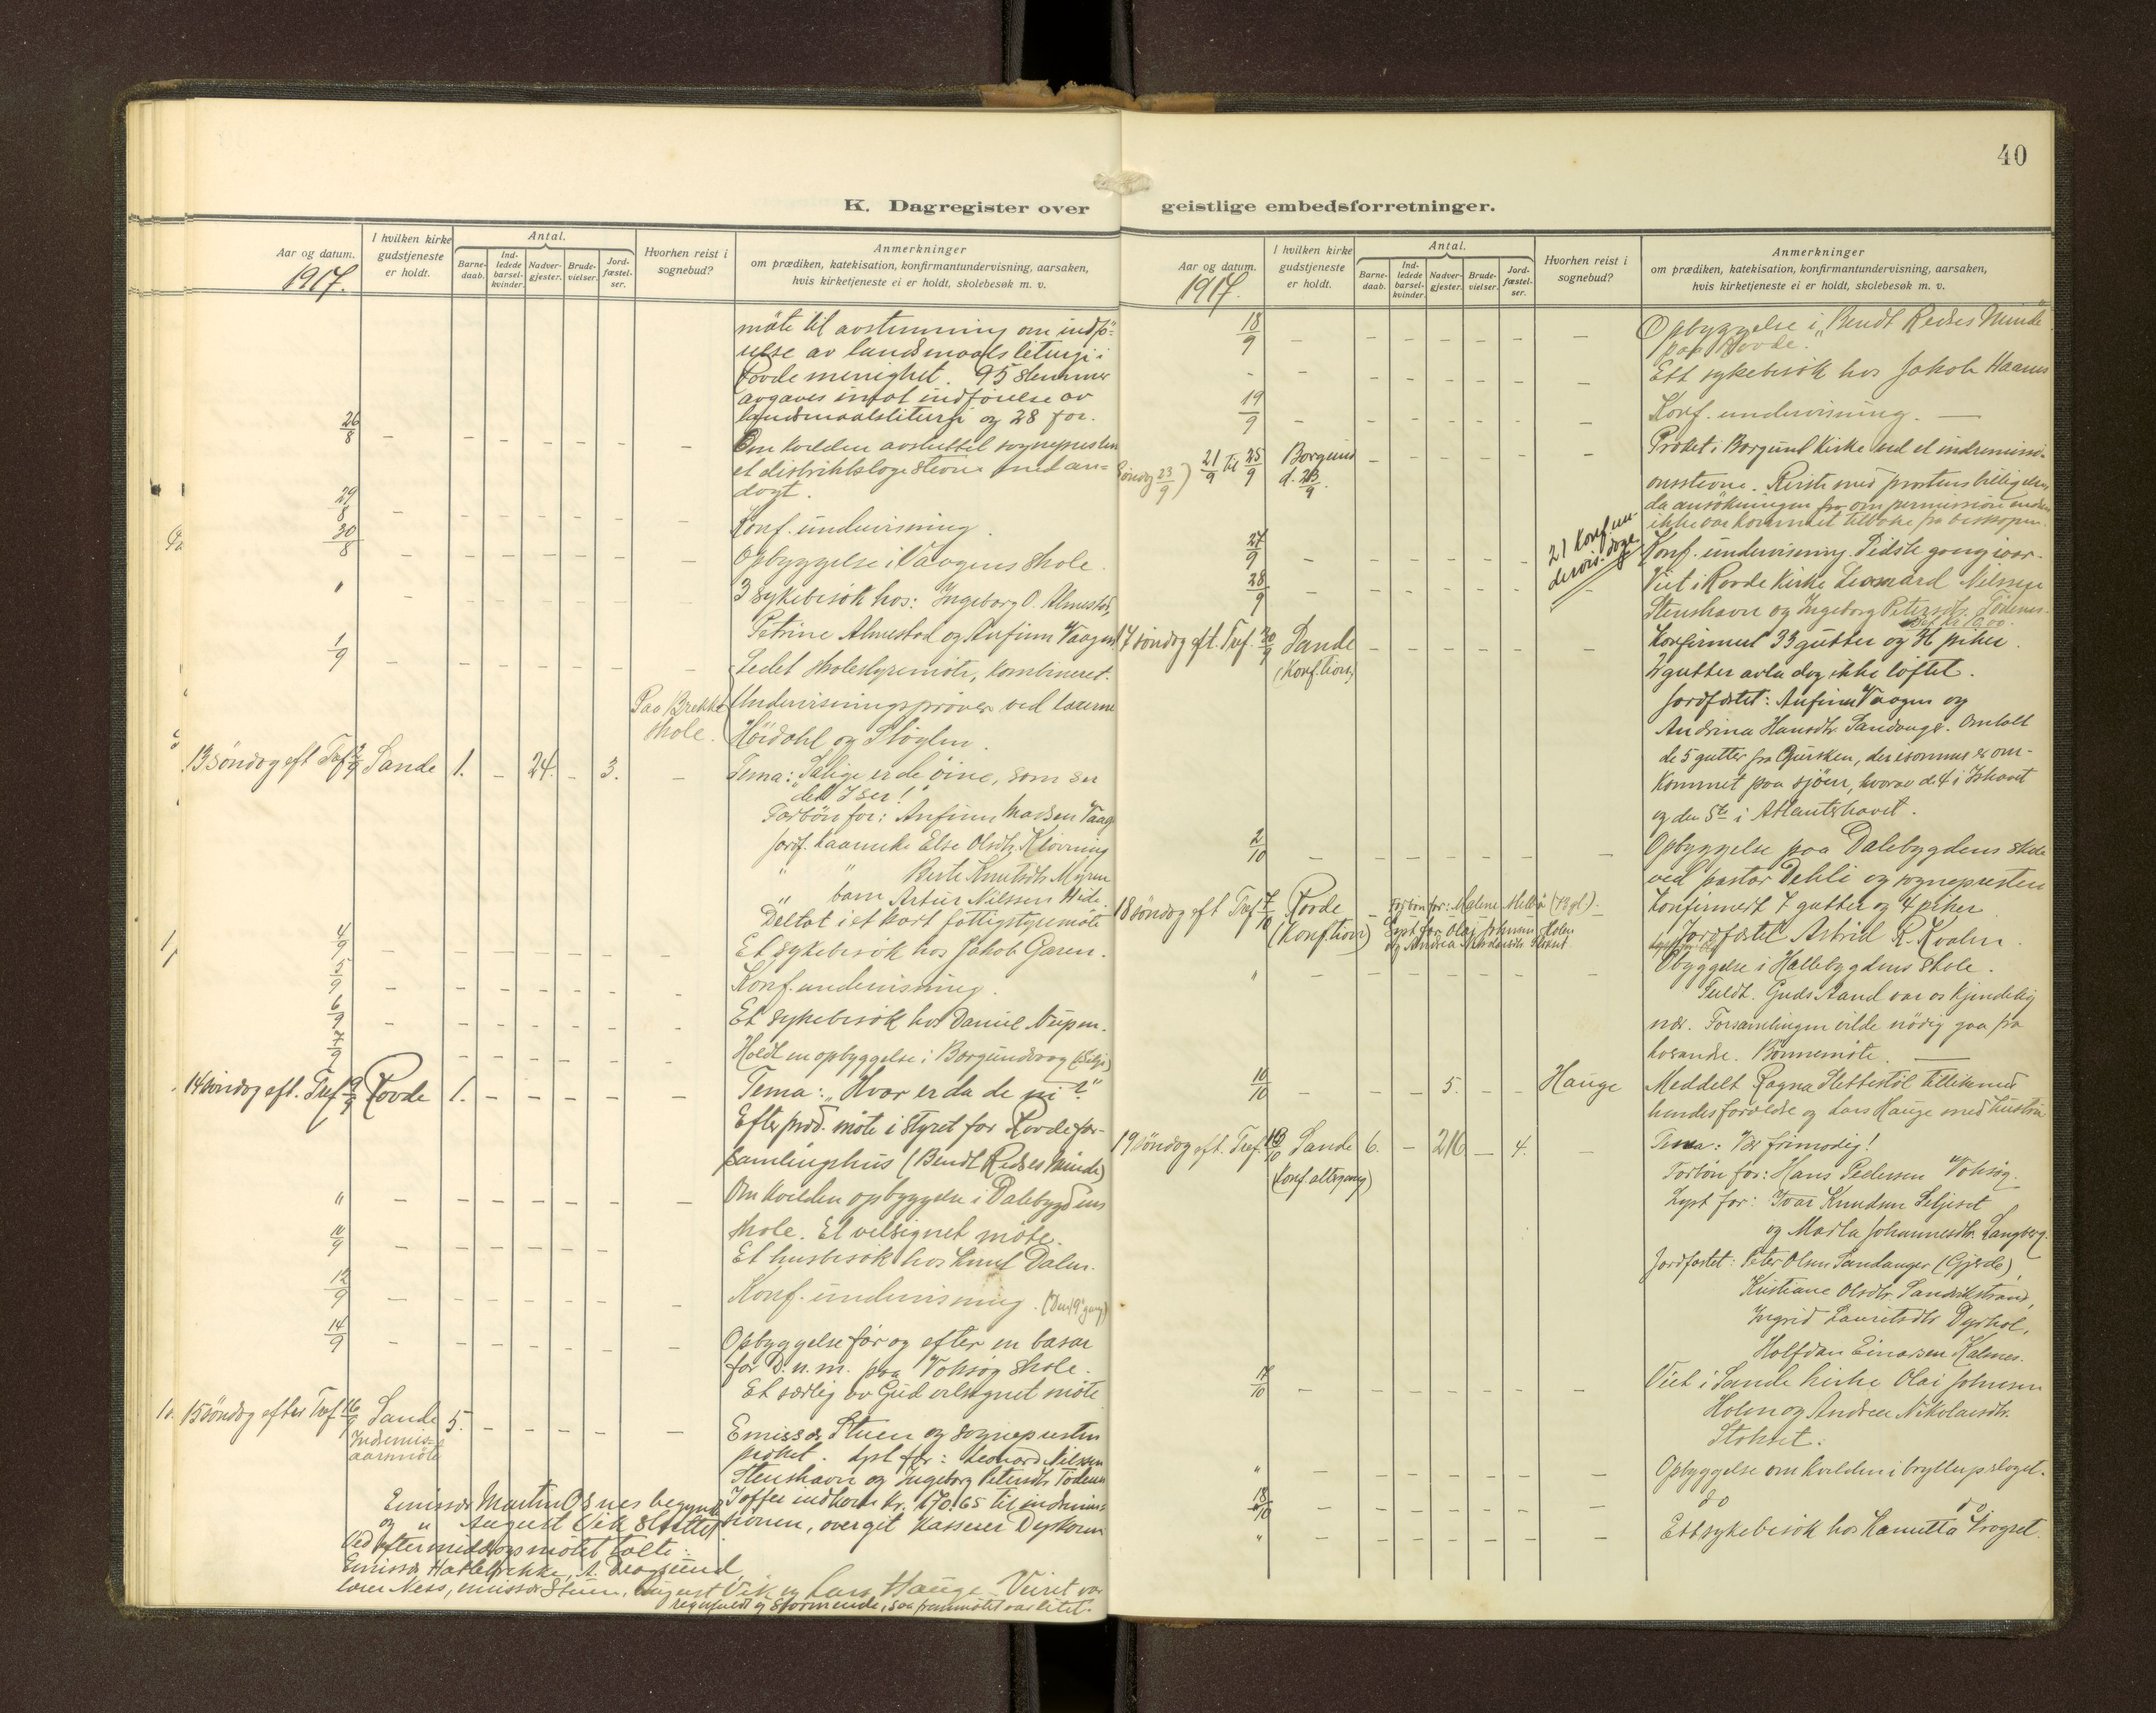 40
K. Dagregister over geistlige embedsforretninger.
Aar og datum.
1917.
I hvilken kirke gudstjeneste er holdt.
Antal.
Barne-daab.
Ind-ledede barsel-kvinder.
Nadver-gjester.
Brude-vielser.
Jord-fæstel-ser.
Hvorhen reist i sognebud?
Anmerkninger
om prædiken, katekisation, konfirmantundervisning, aarsaken,
hvis kirketjeneste ei er holdt, skolebesøk m. v.
møte til avstemning om indfø-
relse av landsmaals liturgi i
Rovde menighet. 95 stemmer
avgaves imot indførelse av
landsmaalsliturgi og 28 for.
26/8 – – – – – – – Om kvelden avsluttet sognepresten
et distriktslogestevne med an-
dagt.
29/8 – – – – – – – Konf. undervisning.
30/8 – – – – – – – Opbyggelse i Vaagens skole.
" – – – – – – 3 sykebesøk hos: Ingeborg O. Almestad,
Petrine Almestad og Anfinn Vaagen
1/9 – – – – – – – Ledet skolestyremøte, kombineret.
Paa Brekke skole. Undervisningsprøver ved lærerne
Høidahl og Sløgedal.
13 søndag eft. Tref. 2/9 Sande 1. – 24. – 3. – Tema: "Salige er de øine, som ser
det I ser!"
Forbøn for: Anfinn Madsen Vaag
Jordf. kaarenke Else Olsdtr. Kløvning
" " Berte Knutsdtr. Myren
" barn Artur Nilssen Hide.
Deltat i et kort fattigstyremøte
4/9 – – – – – – – Et sykebesøk hos Jakob Garen.
5/9 – – – – – – – Konf. undervisning.
6/9 – – – – – – – Et sykebesøk hos Daniel Nupen.
7/9 – – – – – – Holdt en opbyggelse i Borgundvaag (Selje)
14 søndag eft. Tref. 9/9 Rovde 1. – – – – – Tema: "Hvor er da de ni?"
Efter præd. møte i styret for Rovde for-
samlingshus (Bendt Redses Minde)
" – – – – – – – Om kvelden opbyggelse i Dalebygdens
skole. Et velsignet møte.
11/9 – – – – – – Et husbesøk hos Knut Dalen.
12/9 – – – – – – – Konf. undervisning. (Den 19 gang)
14/9 – – – – – – – Opbyggelse før og efter en basar
for D. n. m. paa Voksøy skole.
Et særlig av Gud velsignet møte
15 søndag efter Tref. 16/9 Sande 5. – – – – –
Indremis-
aarsmøte
Emissær Stuen og sognepresten
præket. Lyst for: Leonard Nilssen
Stenshavn og Ingeborg Petersdtr. Tødenes
I offer indkom kr. 170.65 til indremis-
sionen, overgit kasserer Dyskorn
Emissær Martin Osnes begynte
og " August Vik sluttet.
Ved eftermiddagsmøtet talte:
Emissær Hatlebrekke, A. Dragsund,
lærer Ness, emissær Stuen, August Vik og Lars Hauge. Veiret var
regnfuldt og stormende, saa fremmøtet var litet.
Aar og datum.
1917.
I hvilken kirke gudstjeneste er holdt.
Antal.
Barne-daab.
Ind-ledede barsel-kvinder.
Nadver-gjester.
Brude-vielser.
Jord-fæstel-ser.
Hvorhen reist i sognebud?
Anmerkninger
om prædiken, katekisation, konfirmantundervisning, aarsaken,
hvis kirketjeneste ei er holdt, skolebesøk m. v.
18/9 – – – – – – – Opbyggelse i "Bendt Redses Minde"
paa Rovde.
– – – – – – – – Ett sykebesøk hos Jakob Haanes
19/9 – – – – – – – Konf. undervisning. –
Søndag 23/9) 21/9 til 25/9 Borgund d. 23/9. – – – – – – Præket i Borgund kirke ved et indremissi-
onsstevne. Reiste med prostens billigelse,
da ansøkningen fra om permission endnu
ikke var kommet tilbake fra biskopen.
27/9 – – – – – – 21 Konf. un-
dervis. dage Konf. undervisning. Sidste gang iaar.
28/9 – – – – – – – Viet i Rovde Kirke Leonard Nilssen
Stenshavn og Ingeborg Petersdtr. Tødenes.
17 søndag eft. Tref. 30/9 Sande – – – – – – Konfirmert 33 gutter og 34 piker.
(Konf.tion)
2 gutter avla dog ikke løftet.
Jordfæstet: Anfinn Vaagen og
Andrina Hansdtr. Sandanger. Omtalt
de 5 gutter fra Gursken, der isommer er om-
kommet paa sjøen, hvorav de 4 i Ishavet
og den 5te i Atlanterhavet.
2/10 – – – – – – – Opbyggelse paa Dalebygdens skole
ved pastor Dehli og sognepresten
18 søndag eft. Tref. 7/10 Rovde – Forbøn for: Malene Melkø
(Konf.tion) Lyst for Olai Johnsen Holen
og Andrea Nikolaisdtr. Stokset
Konfirmert 7 gutter og 4 piker
Jordfæstet Astrid R. Kvalen.
" – – – – – – – Obyggelse i Hallebygdens skole.
Fuldt. Guds Aand var os kjendelig
nær. Forsamlingen vilde nødig gaa fra
hverandre. Bønnemøte. –
10/10 – – – 5. – – Hauge Meddelt Ragna Slettestøl tillikemed
hendes forældre og Lars Hauge med hustru
19 søndag eft. Tref. 13/10 Sande 6. – 216 – 4. – Tema: Vær frimodig!
(Konf. altergang)
Forbøn for: Hans Pedersen Voksøy.
Lyst for: Ivar Knudsen Seljeset
og Marta Johannesdtr. Langberg.
Jordfæstet: Peter Olsen Sandanger (Gjerde),
Kristiane Olsdtr. Sandvikstrand,
Ingrid Lauritsdtr. Dyrhol,
Halfdan Einarsen Kalnes.
17/10 – – – – – – – Viet i Sande kirke Olai Johnsen
Holen og Andrea Nikolaisdtr.
Stokset.
" – – – – – – – Opbyggelse om kvelden i bryllupslaget.
18/10 – – – – – – – do do
" – – – – – – – Ett sykebesøk hos Kanutta Drogset.